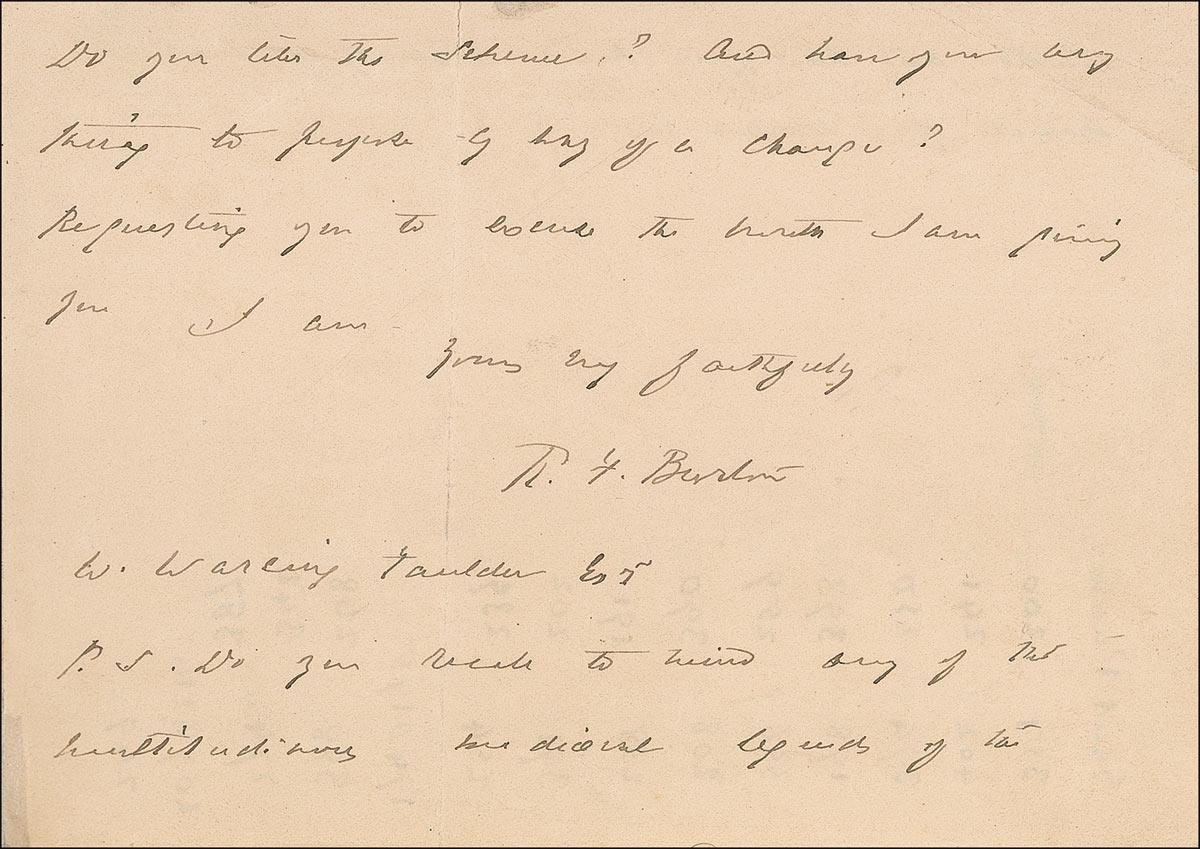 Do you like the Scheme? And have you any
thing to propose by way of a change?
Requesting you to excuse the trouble I am giving
you I am
Yours very faithfully
R. F. Burton
W. Wareing Faulder Esqr
P.S. Do you recall to mind any of the
multitudinous mediæval legends of the